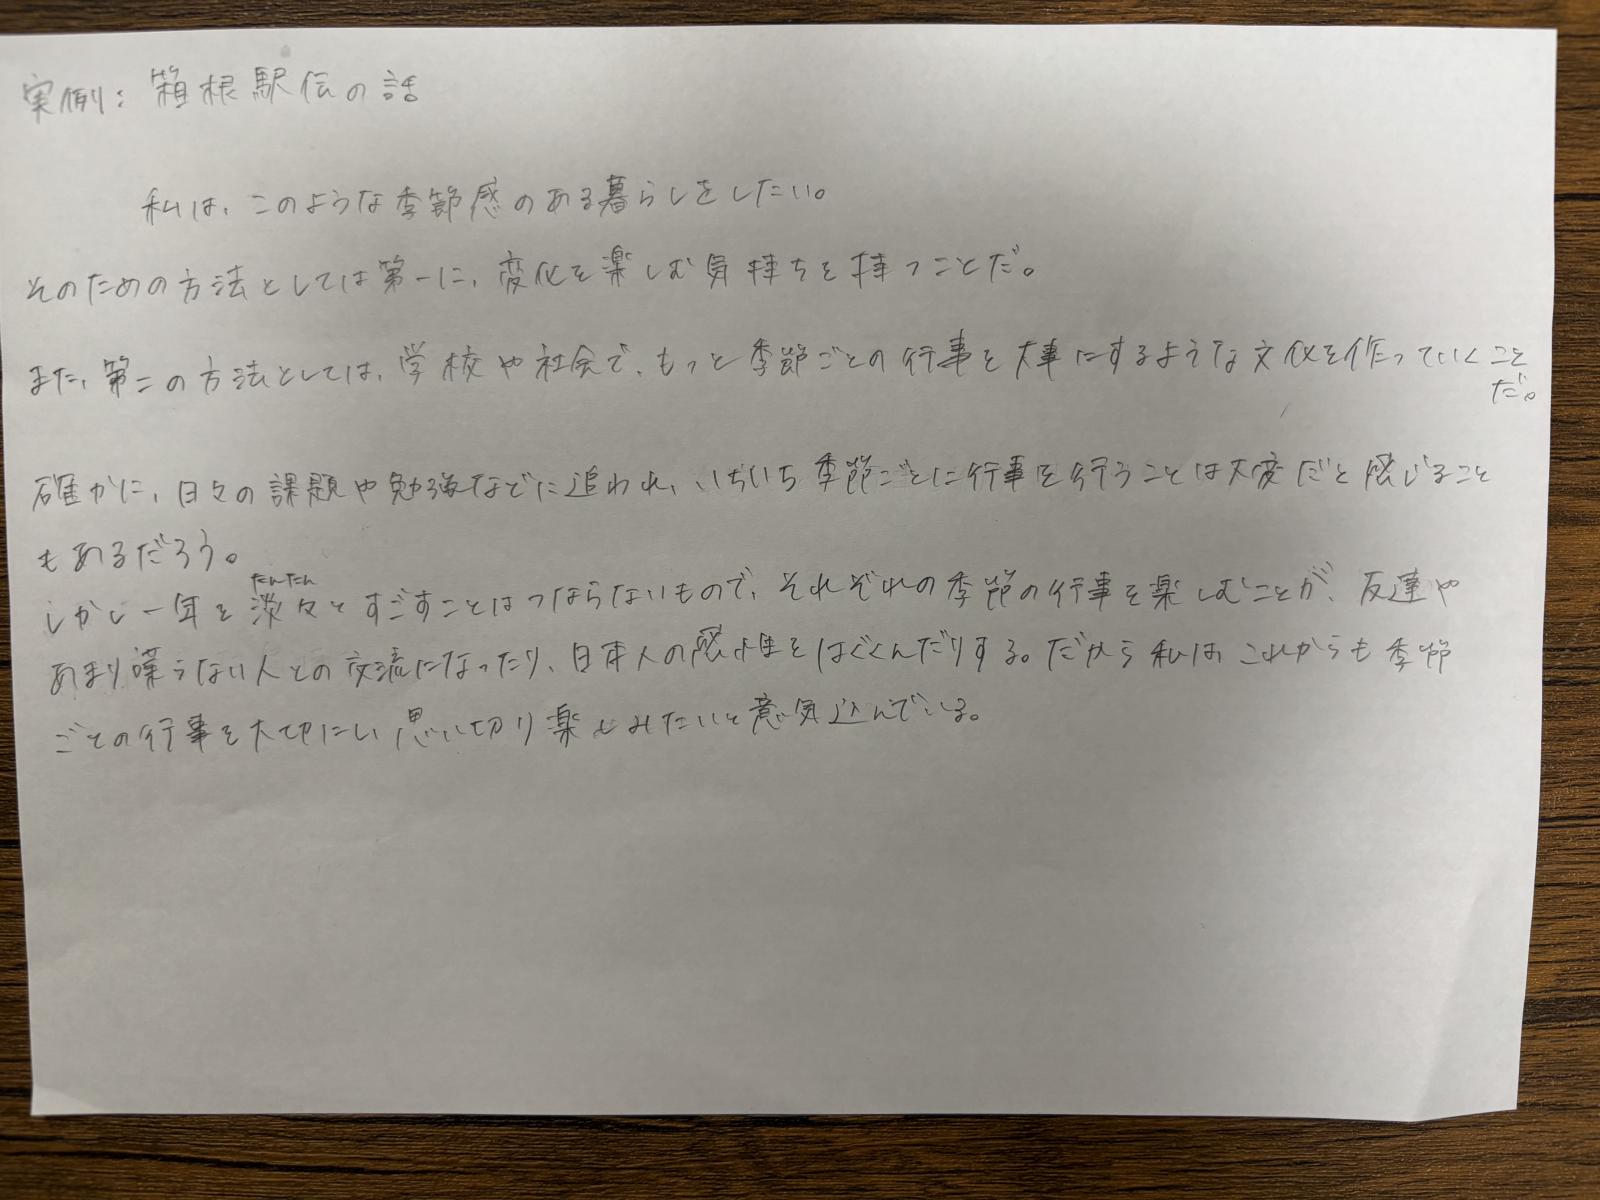 実例：箱根駅伝の話
私は、このような季節感のある暮らしをしたい。
そのための方法としては第一に、変化を楽しむ気持ちを持つことだ。
また、第二の方法としては、学校や社会で、もっと季節ごとの行事を大事にするような文化を作っていくこと
だ。
確かに、日々の課題や勉強などに追われ、いちいち季節ごとに行事を行うことは大変だと感じること
もあるだろう。
たんたん
しかし一年を淡々とすごすことはつまらないもので、それぞれの季節の行事を楽しむことが、友達や
あまり喋らない人との交流になったり、日本人の感性をはぐくんだりする。だから私は、これからも季節
ごとの行事を大切にし、思い切り楽しみたいと意気込んでいる。